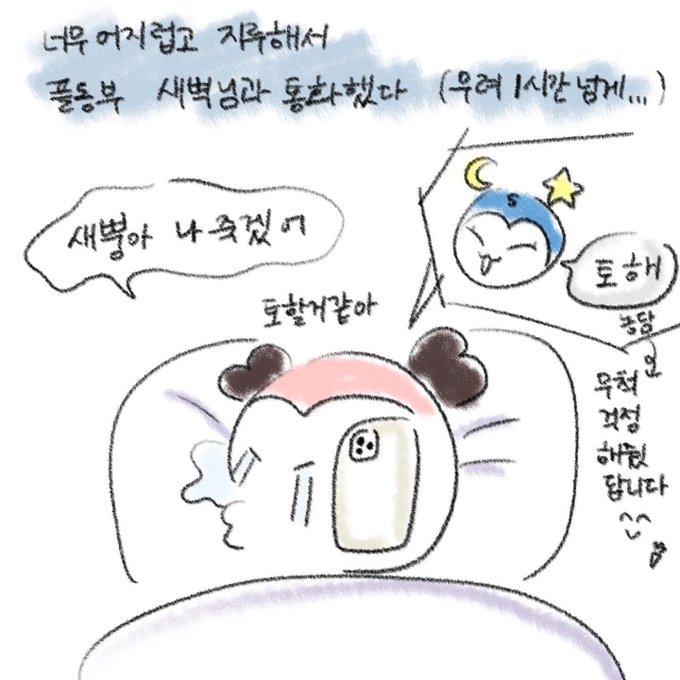 너무 어지럽고 지루해서
플동부 새벽님과 통화했다 (무려 1시간 넘게...)
새뼝아 나 죽겠어
토할거같아
S
토해
농담
이
무척
걱정
해줬
답니다
^^